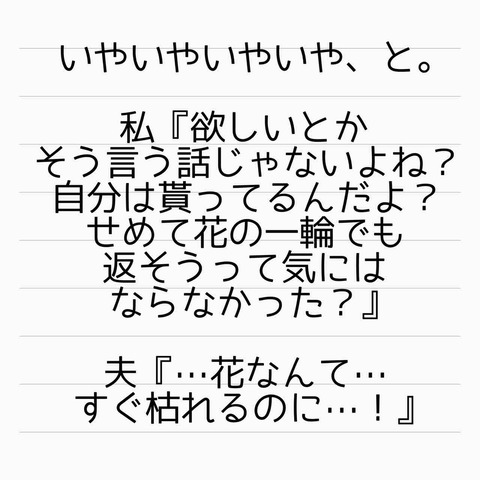 いやいやいやいや、と。
私『欲しいとか
そう言う話じゃないよね？
自分は貰ってるんだよ？
せめて花の一輪でも
返そうって気には
ならなかった？』
夫『…花なんて…
すぐ枯れるのに…！』